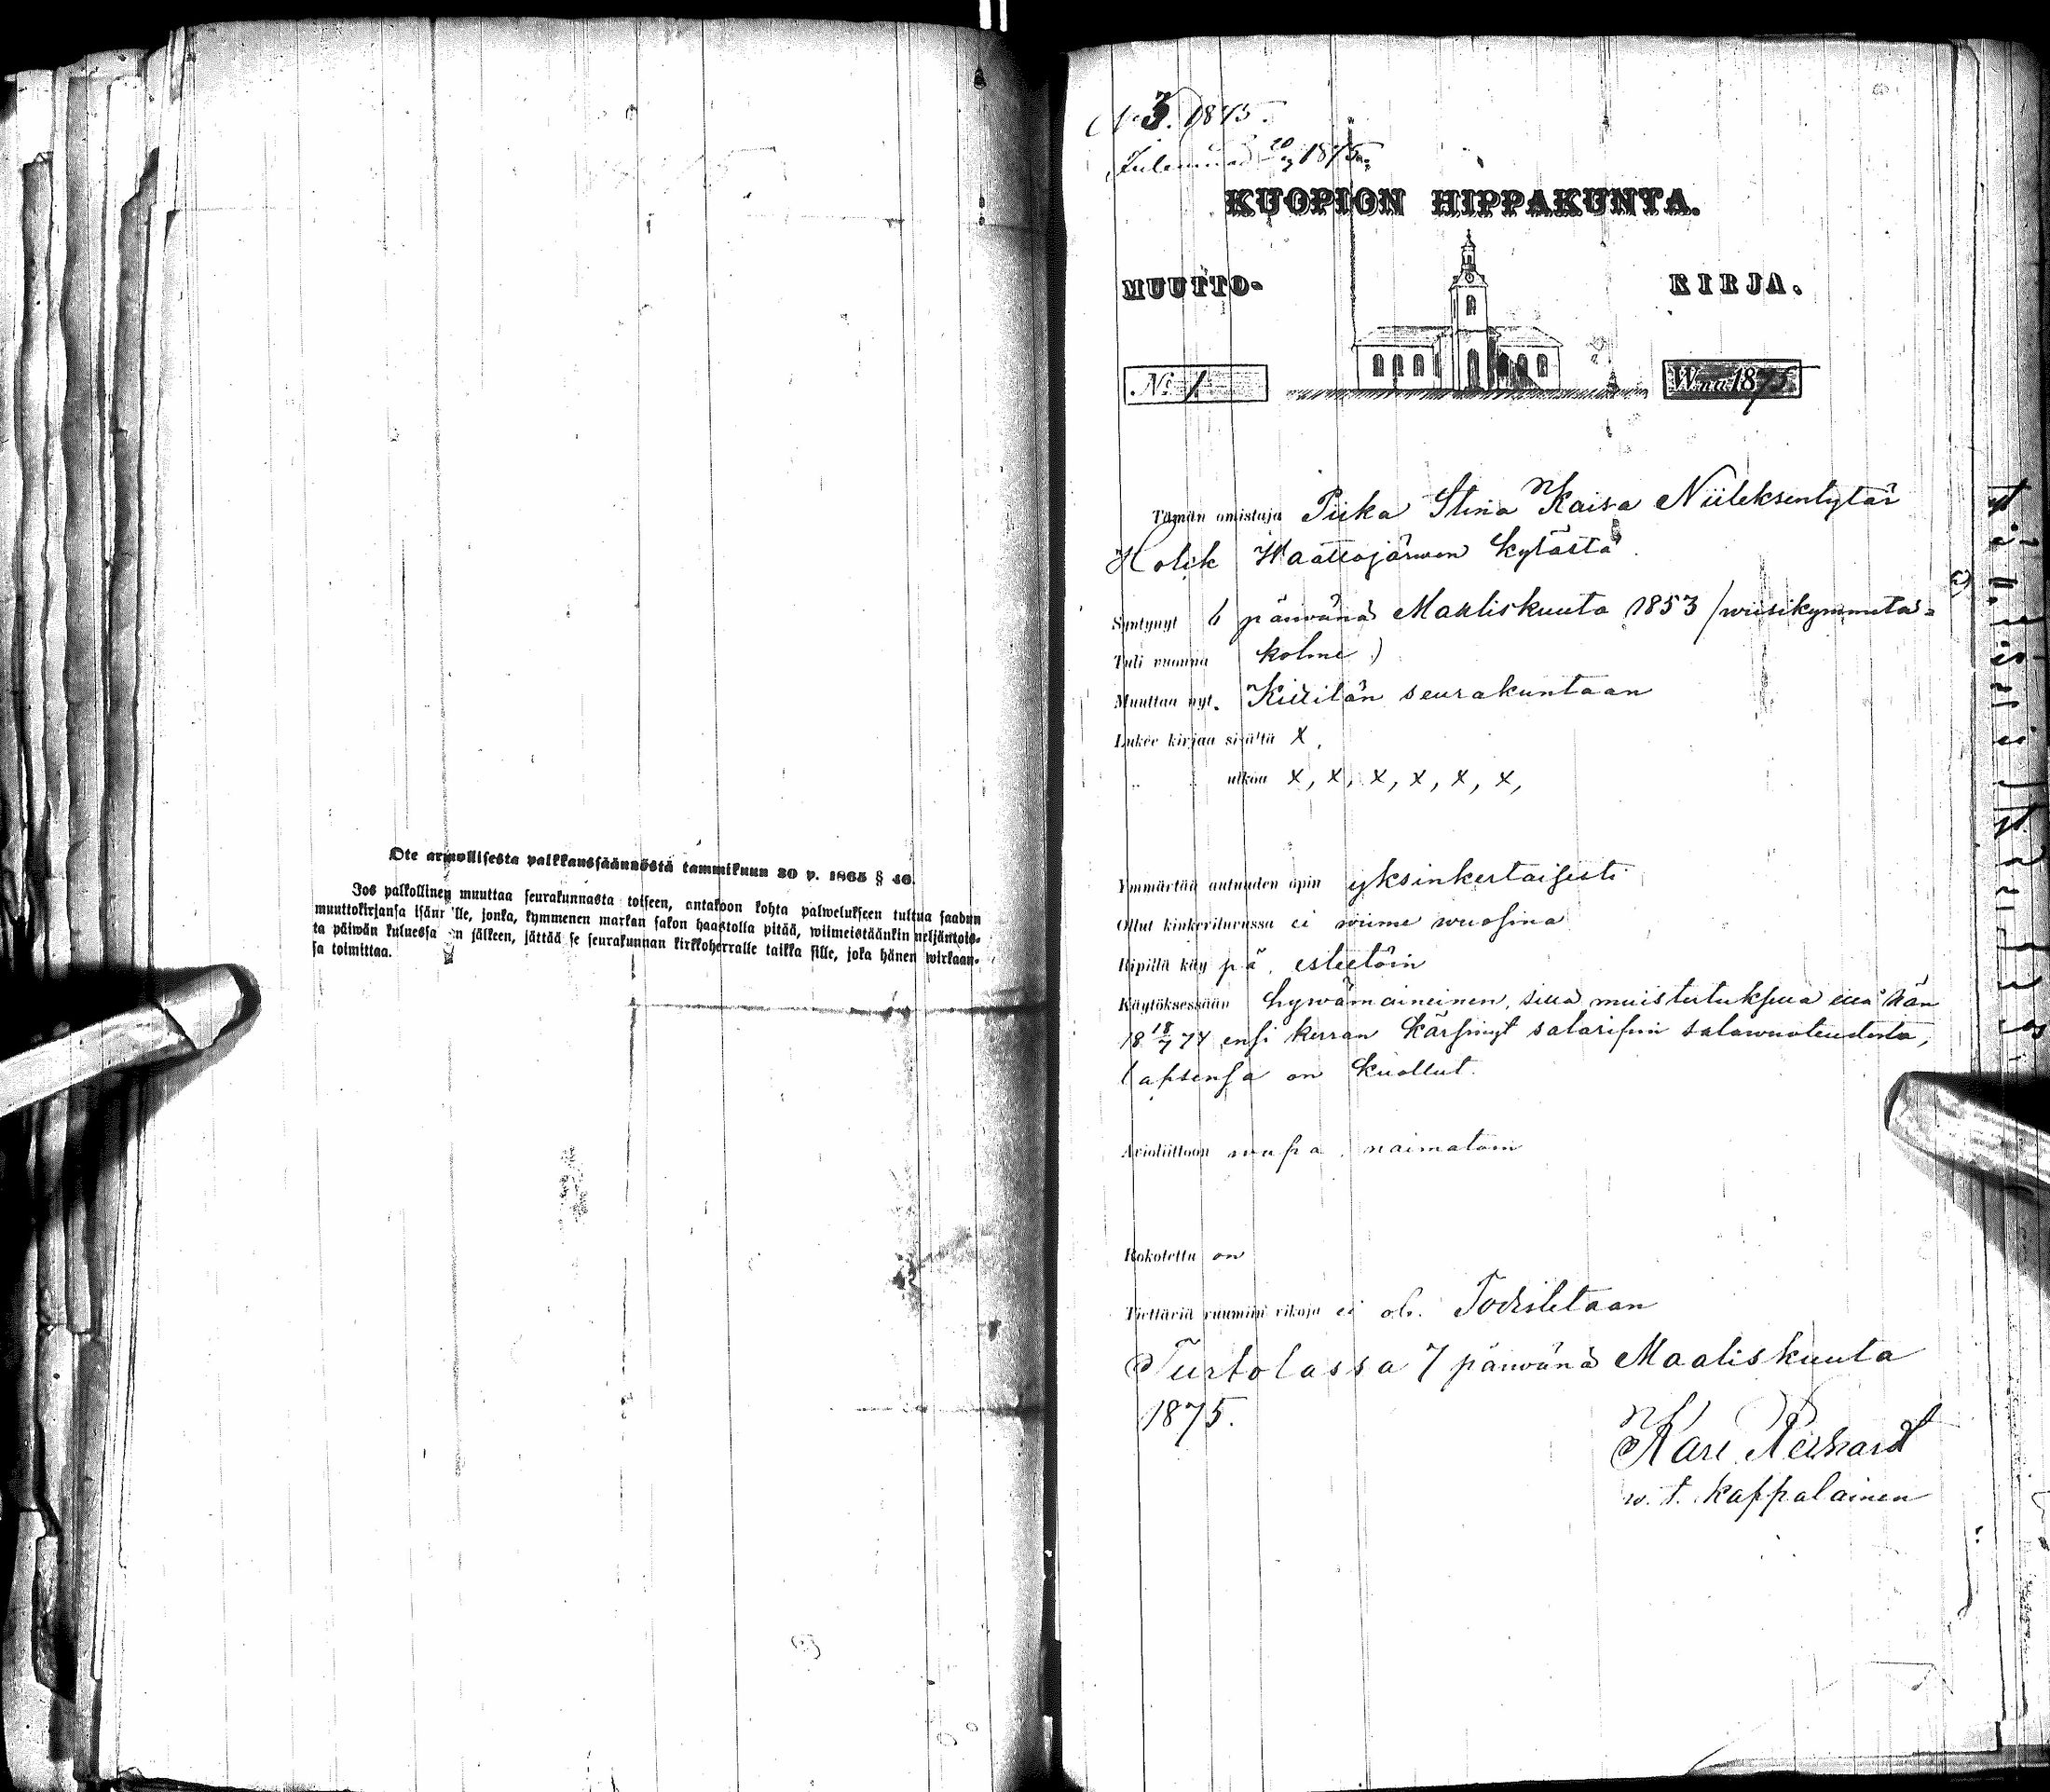 Ote armollisesta palkkaussäännöstä tammikuun 30 p. 1865 § 46.
Jos palkollinen muuttaa seurakunnasta toiseen, antakoon kohta palwelukseen tultua saadun
muuttokirjansa isän lle, jonka, kymmenen markan sakon haastolla pitää, wiimeistäänkin neljäntois-
ta päiwän kuluessa n jälkeen, jättää se seurakunnan kirkkoherralle taikka sille, joka hänen wirkaan-
sa toimittaa.
N:o 3. 1875.
1875
KUOPION HIPPAKUNTA.
MUUTTO- KIRJA.
N:o 1. W:na 1875.
Tämän omistaja Piika Stina Kaisa Niileksentytär
Kolik Waattojärwen kylästä
Syntynyt 6 päiwänä Maaliskuuta 1853 (wiisikymmetä-
Tuli vuonna kolme)
Muuttaa nyt. Kittilän seurakuntaan
Lukee kirjaa sisältä x,
" " ulkoa x, x, x, x, x, x,
Ymmärtää autuuden opin yksinkertaisesti
Ollut kinkeriluvussa ei wiime wuosina
Ripillä käy pä, esteetöin
Käytöksessään hywämaineinen, sillä muistutuksella että hän
18 18/7 74 ensi kerran kärsinyt salawuoteudesta,
lapsensa on kuollut.
Avioliittoon wapa, naimatoin
Rokotettu on
Tiettäviä ruumiin vikoja ei ole. Todistetaan
Turtolassa 7 päiwänä Maaliskuuta
1875.
Karl
w. t. kappalainen